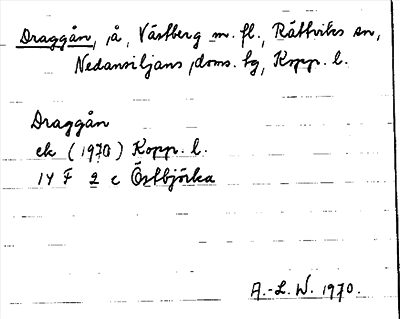 Draggån, å, Västberg m. fl., Rättviks sn,
Nedansiljans doms. tg, Kopp. l.
Draggån
ek (1970) Kopp. l.
14 F 2 c Östbjörka
A.-L. W. 1970.